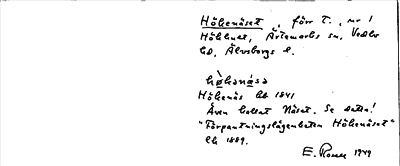 Hökenäset, förr T., nr 1
Hökhult, Ärtemarks sn, Vedbo
hd, Älvsborgs l.
hø̀kənásə
Hökenäs hb 1841
Även kallat Näset. Se detta!
"Förpantningslägenheten Hökenäset"
hb 1889.
E. Rosell 1949